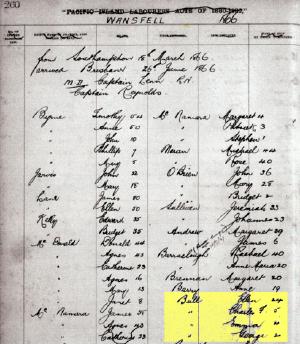 260
"PACIFIC ISLAND LABOURERS ACTS OF 1880-1892."
WANSFELL 1866
from Southampton 15th March 1866
arrived Brisbane 26th June 1866
Captain Lean R.N.
Captain Reynolds
Byrne Timothy 54 Mc Namara Margaret 4
" Anne 50 " Patrick 3
" John 10 " Stephen 1
" Phillip 7 Moran Michael 44
" Mary 5 " Rose 40
Jarvis John 32 O'Brien John 36
" Mary 18 " Mary 28
Lane James 50 " Bridget 2
" Ellen 50 Sullivan Jeremiah 33
Kelly Edward 35 " Johanna 23
" Bridget 35 Andrew Margaret 29
Mc Donald Donald 44 " James 6
" Agnes 43 Raphael 40
" Catherine 23 " Anne Maria 20
" Agnes Brennan Margaret
" Mary 13 Barry Anne 19
" Janet 8 Ball Ellen 24
Mc Namara James 35 " Charles F. 5
" Agnes 40 " Emma
" Catherine 33 " George 2